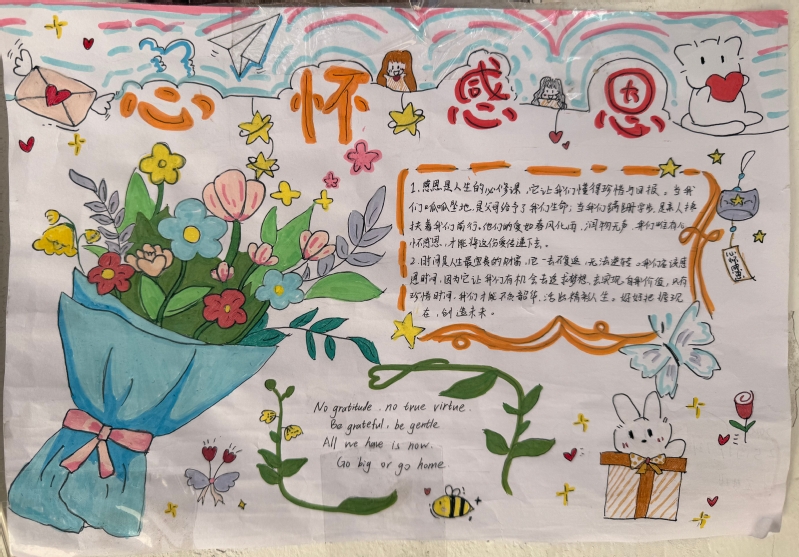 心怀感恩
1.感恩是人生的必修课,它让我们懂得珍惜与回报。当我
们呱呱坠地,是父母给予了我们生命;当我们蹒跚学步,是家人搀
扶着我们前行,他们的爱如春风化雨,润物无声,我们唯有心
怀感恩,才能将这份爱传递下去。
2.时间是人生最宝贵的财富,它一去不复返,无法逆转。我们应该感
恩时间,因为它让我们有机会去追求梦想,去实现自我价值。只有
珍惜时间,我们才能不负韶华,活出精彩人生。好好把握现
在,创造未来。
心怀感恩
No gratitude, no true virtue.
Be grateful, be gentle
All we have is now.
Go big or go home.